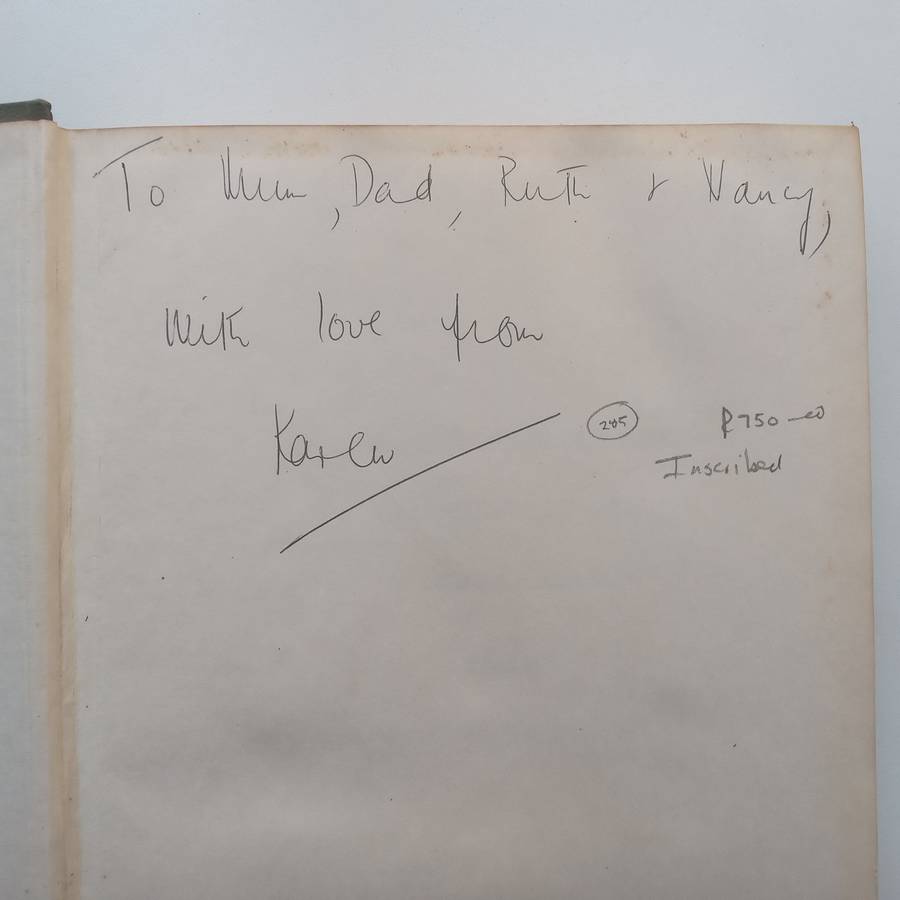 To Mum, Dad, Ruth & Nancy,
with love from
Karen
245 R750-00
Inscribed